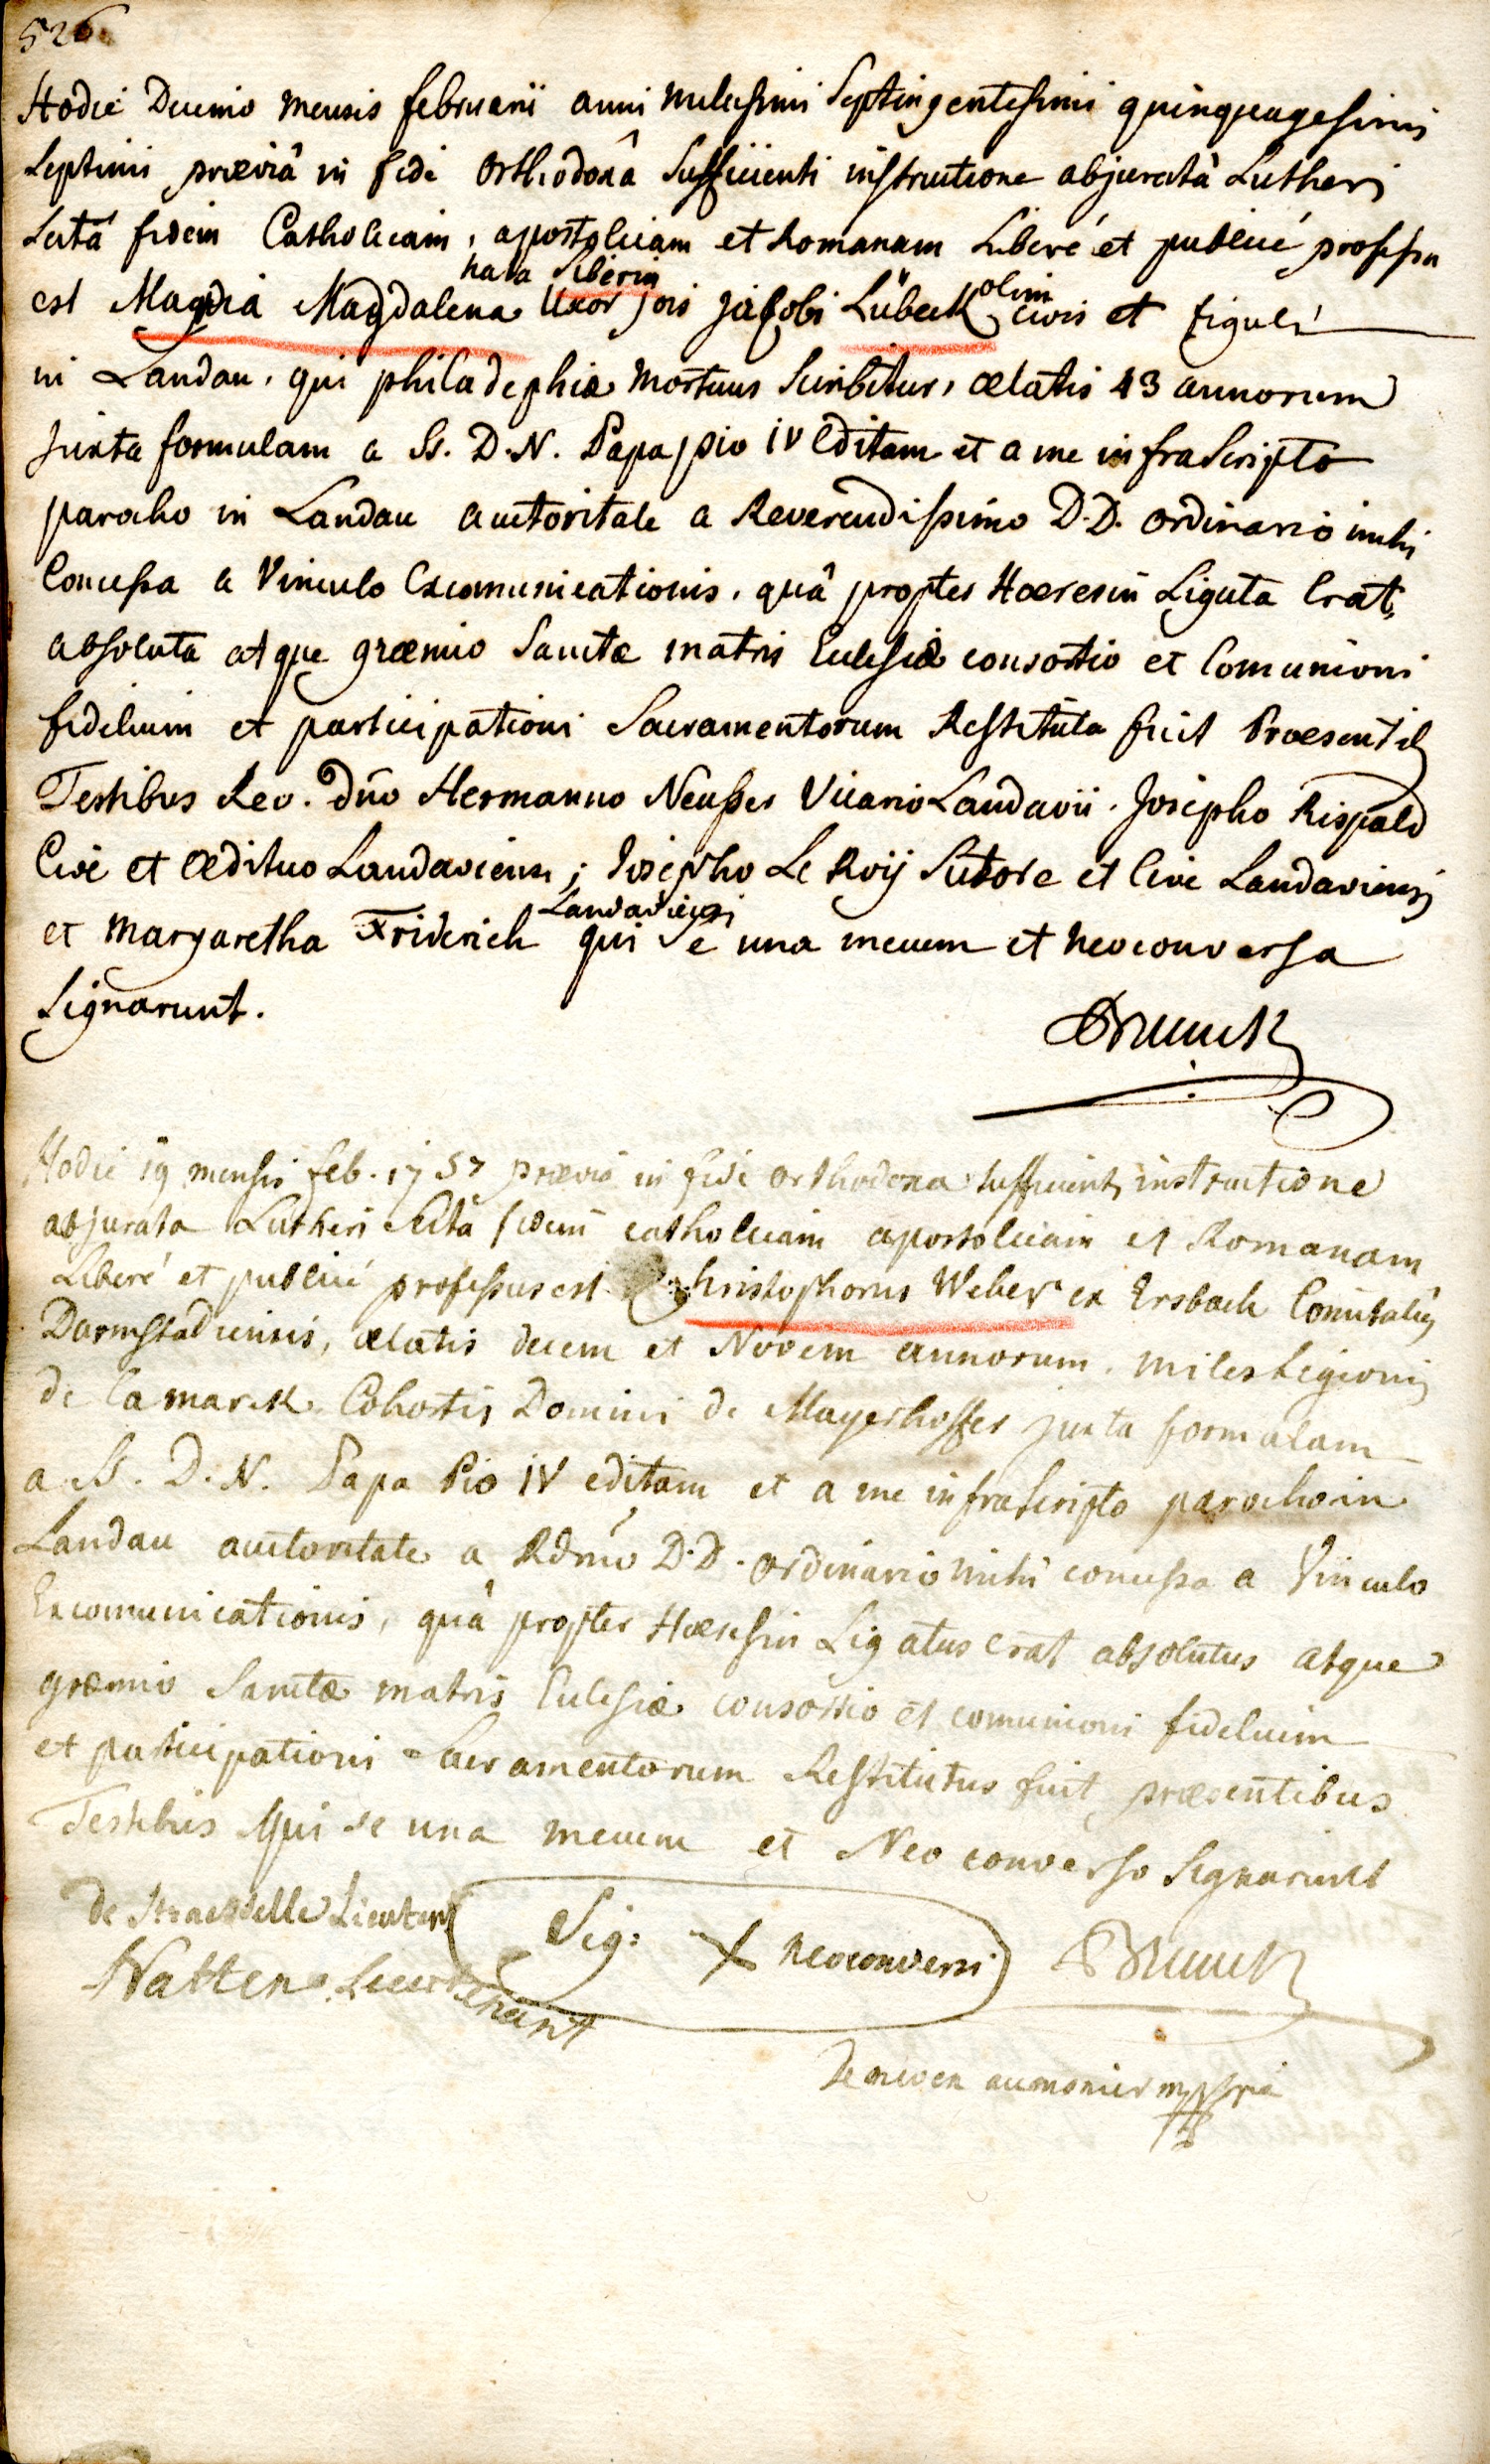 526
Hodie Decimo mensis februarii anni millesimi Septingentesimi quinquagesimi
Septimi præviâ in fide Orthodoxâ Sufficienti instructione abjuratâ Lutheri
Sectâ fidem Catholicam, apostolicam et Romanam Liberé et publicé professa
nata Siberin
est Maria Magdalena Uxor jois jacobi Lübeck olim civis et figuli
in Landau, qui philadephiæ mortuus Scribitur, ætatis 43 annorum
juxta formulam a SS. D. N. Papa pio IV Editam et a me infraScripto
parocho in Landau auctoritate a Reverendissimo D.D. ordinario mihi
Concessa a Vinculo Excomunicationis, quâ propter Hæresin Ligata Erat,
absoluta atque græmio Sanctæ matris Eclesiæ consortio et Comunioni
fidelium et participationi Sacramentorum Restituta fuit Præsentib
Testibus Rev. dño Hermanno Neusser Vicario Landavii. Josepho Rispald
Cive et ædituo Landaviensi; Josepho Le Roij Sutore et Cive Landaviensi
Landaviensi
et Margaretha Friderich qui Se una mecum et neoconversa
Signarunt.
Brunck
Hodie 19 mensis feb. 1757 prævia in fide orthodoxa sufficienti instructione
abjurata Lutheri Sectâ fidem catholicam apostolicam et Romanam
Liberé et publicé professus est Christophorus Weber ex Ersbach Comitatus
Darmstadiensis, ætatis decem et Novem annorum, miles Legionis
de Lamarck Cohortis Domini de Mayerhoffer juxta formulam
a SS. D. N. Papa Pio IV editam et a me infraScripto parocho in
Landau auctoritate a Rdmo D.D. ordinario mihi concessa a Vinculo
Excomunicationis, quâ propter Hæresin Ligatus Erat absolutus atque
græmio Sanctæ matris Eclesiæ consortio et comunioni fidelium
et paticipationi Sacramentorum Restitutus fuit præsentibus
Testibus qui se una mecum et Neo converso Signarunt
de Lieuten Sig: X neoconversi Brunck
Natten Lieutenant
aumonier mppria